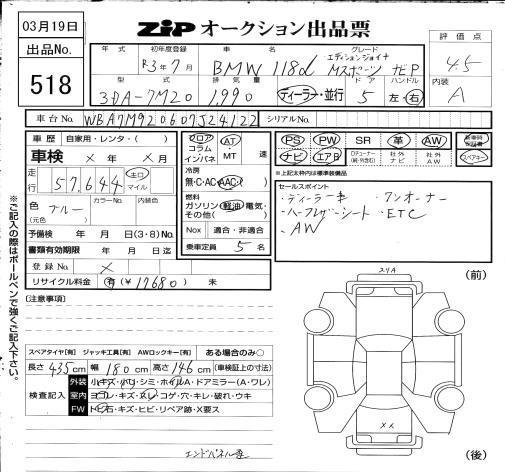 03月19日
ZIP オークション出品票
出品No.
518
年式
初年度登録
車名
グレード
評価点
R3年7月
BMW 118d
エディションジョイ+
Mスポーツ ナビP
4.5
型式
排気量
ドア
ハンドル
内装
3DA-7M20
1,990
ディーラー・並行
5
左・右
A
車台No.
WBA7M920607J24122
シリアルNo.
車歴
自家用・レンタ・( )
車検 × 年 × 月
走行 57,644 キロ マイル
色 ブルー (元色)
カラーNo.
内装色
予備検 年 月 日(3・8)No.
書類有効期限 年 月 日迄
登録No. ×
リサイクル料金 有(¥17680) 未
フロア コラム インパネ
AT MT 速
冷房
無・C・AC・AAC・( )
燃料
ガソリン・軽油・電気・その他( )
Nox 適合・非適合
乗車定員 5 名
PS PW SR 革 AW
ナビ エアB
社外ナビ
社外AW
スペアキー
※上記太枠内は標準装備品
セールスポイント
・ディーラー車 ・ワンオーナー
・ハーフレザーシート ・ETC
・AW
※ご記入の際はボールペンで強くご記入下さい。
[注意事項]
スペアタイヤ[有] ジャッキ工具[有] AWロックキー[有] ある場合のみ○
長さ 435cm 幅 180cm 高さ 146cm (車検証上の寸法)
検査記入
外装 小キズ・小凹・シミ・ホイルA・ドアミラー(A・ワレ)
室内 ヨゴレ・キズ・スレ・コゲ・穴・キレ・破れ・ウキ
FW トビ石・キズ・ヒビ・リペア跡・X要ス
エンドパネル歪
スリA
(前)
××
(後)